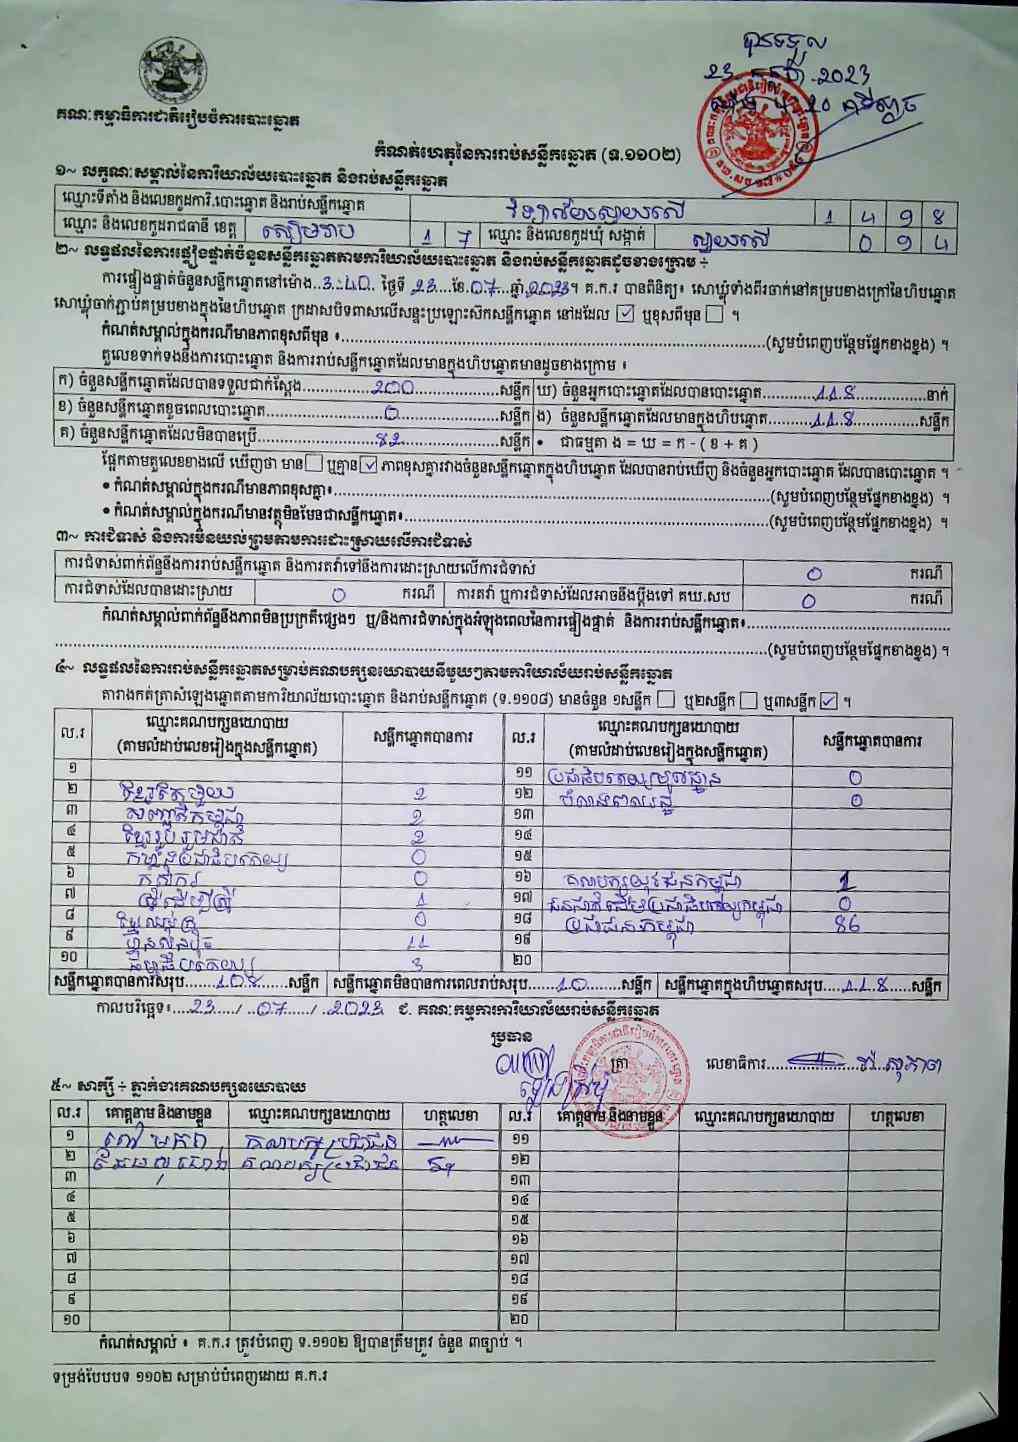 បានទទួល
គណៈកម្មាធិការជាតិរៀបចំការបោះឆ្នោត
កំណត់ហេតុនៃការរាប់សន្លឹកឆ្នោត (ទ.១១០២)
១~ លក្ខណៈសម្គាល់នៃការិយាល័យបោះឆ្នោត និងរាប់សន្លឹកឆ្នោត
ឈ្មោះទីតាំង និងលេខកូដការិ.បោះឆ្នោត និងរាប់សន្លឹកឆ្នោត វិទ្យាល័យស្វាយរលើ 1 4 9 8
ឈ្មោះ និងលេខកូដរាជធានី ខេត្ត សៀមរាប 1 7 ឈ្មោះ និងលេខកូដឃុំ សង្កាត់ 0 9 4
២~ លទ្ធផលនៃការផ្ទៀងផ្ទាត់ចំនួនសន្លឹកឆ្នោតតាមការិយាល័យបោះឆ្នោត និងរាប់សន្លឹកឆ្នោតដូចខាងក្រោម ÷
ការផ្ទៀងផ្ទាត់ចំនួនសន្លឹកឆ្នោតនៅម៉ោង..3:40..ថ្ងៃទី 23...ខែ.07...ឆ្នាំ.2023។ គ.ក.រ បានពិនិត្យ៖ សោឃ្លុំទាំងពីរចាក់នៅគម្របខាងក្រៅនៃហិបឆ្នោត
សោឃ្លុំចាក់ភ្ជាប់គម្របខាងក្នុងនៃហិបឆ្នោត ក្រដាសបិទពាសលើសន្ទះប្រឡោះស៊កសន្លឹកឆ្នោត នៅដដែល ☑ ឬខុសពីមុន ☐ ។
កំណត់សម្គាល់ក្នុងករណីមានភាពខុសពីមុន ៖......(សូមបំពេញបន្ថែមផ្នែកខាងខ្នង) ។
តួលេខទាក់ទងនឹងការបោះឆ្នោត និងការរាប់សន្លឹកឆ្នោតដែលមានក្នុងហិបឆ្នោតមានដូចខាងក្រោម ៖
ក) ចំនួនសន្លឹកឆ្នោតដែលបានទទួលជាក់ស្តែង......200......សន្លឹក ឃ) ចំនួនអ្នកបោះឆ្នោតដែលបានបោះឆ្នោត......118......នាក់
ខ) ចំនួនសន្លឹកឆ្នោតខូចពេលបោះឆ្នោត......0......សន្លឹក ង) ចំនួនសន្លឹកឆ្នោតដែលមានក្នុងហិបឆ្នោត......118......សន្លឹក
គ) ចំនួនសន្លឹកឆ្នោតដែលមិនបានប្រើ......82......សន្លឹក • ជាធម្មតា ង = ឃ = ក - ( ខ + គ )
ផ្អែកតាមតួលេខខាងលើ ឃើញថា មាន ☐ ឬគ្មាន ☑ ភាពខុសគ្នារវាងចំនួនសន្លឹកឆ្នោតក្នុងហិបឆ្នោត ដែលបានរាប់ឃើញ និងចំនួនអ្នកបោះឆ្នោត ដែលបានបោះឆ្នោត ។
• កំណត់សម្គាល់ក្នុងករណីមានភាពខុសគ្នា៖......(សូមបំពេញបន្ថែមផ្នែកខាងខ្នង) ។
• កំណត់សម្គាល់ក្នុងករណីមានវត្ថុមិនមែនជាសន្លឹកឆ្នោត៖......(សូមបំពេញបន្ថែមផ្នែកខាងខ្នង) ។
៣~ ការជំទាស់ និងការមិនយល់ព្រមតាមការដោះស្រាយលើការជំទាស់
ការជំទាស់ពាក់ព័ន្ធនឹងការរាប់សន្លឹកឆ្នោត និងការតវ៉ាទៅនឹងការដោះស្រាយលើការជំទាស់ 0 ករណី
ការជំទាស់ដែលបានដោះស្រាយ 0 ករណី ការតវ៉ា ឬការជំទាស់ដែលអាចនឹងប្តឹងទៅ គឃ.សប 0 ករណី
កំណត់សម្គាល់ពាក់ព័ន្ធនឹងភាពមិនប្រក្រតីផ្សេងៗ ឬ/និងការជំទាស់ក្នុងអំឡុងពេលនៃការផ្ទៀងផ្ទាត់ និងការរាប់សន្លឹកឆ្នោត៖......
......(សូមបំពេញបន្ថែមផ្នែកខាងខ្នង) ។
៤~ លទ្ធផលនៃការរាប់សន្លឹកឆ្នោតសម្រាប់គណបក្សនយោបាយនីមួយៗតាមការិយាល័យរាប់សន្លឹកឆ្នោត
តារាងកត់ត្រាសំឡេងឆ្នោតតាមការិយាល័យបោះឆ្នោត និងរាប់សន្លឹកឆ្នោត (ទ.១១០៨) មានចំនួន ១សន្លឹក ☐ ឬ២សន្លឹក ☐ ឬ៣សន្លឹក ☑ ។
ល.រ ឈ្មោះគណបក្សនយោបាយ (តាមលំដាប់លេខរៀងក្នុងសន្លឹកឆ្នោត) សន្លឹកឆ្នោតបានការ ល.រ ឈ្មោះគណបក្សនយោបាយ (តាមលំដាប់លេខរៀងក្នុងសន្លឹកឆ្នោត) សន្លឹកឆ្នោតបានការ
១ ១១ ប្រជាធិបតេយ្យមូលដ្ឋាន 0
២ ខ្មែរតែមួយ 2 ១២ 0
៣ សញ្ជាតិកម្ពុជា 2 ១៣
៤ ខ្មែររួបរួមជាតិ 2 ១៤
៥ កម្លាំងប្រជាធិបតេយ្យ 0 ១៥
៦ កសិករ 0 ១៦ គណបក្សយុវជនកម្ពុជា 1
៧ ស្ត្រីដើម្បីស្ត្រី 1 ១៧ ជនជាតិដើមប្រជាធិបតេយ្យកម្ពុជា 0
៨ ខ្មែរឈប់ក្រ 0 ១៨ ប្រជាជនកម្ពុជា 86
៩ ហ៊្វុនស៊ិនប៉ិច 11 ១៩
១០ ធម្មាធិបតេយ្យ 3 ២០
សន្លឹកឆ្នោតបានការសរុប......108......សន្លឹក សន្លឹកឆ្នោតមិនបានការពេលរាប់សរុប......10......សន្លឹក សន្លឹកឆ្នោតក្នុងហិបឆ្នោតសរុប...118...សន្លឹក
កាលបរិច្ឆេទ៖...23.../.07.../.2023 ជ. គណៈកម្មការការិយាល័យរាប់សន្លឹកឆ្នោត
ប្រធាន
ត្រា លេខាធិការ
៥~ សាក្សី ÷ ភ្នាក់ងារគណបក្សនយោបាយ
ល.រ គោត្តនាម និងនាមខ្លួន ឈ្មោះគណបក្សនយោបាយ ហត្ថលេខា ល.រ គោត្តនាម និងនាមខ្លួន ឈ្មោះគណបក្សនយោបាយ ហត្ថលេខា
១ គណបក្សប្រជាជន ១១
២ គណបក្សប្រជាជន ១២
៣ ១៣
៤ ១៤
៥ ១៥
៦ ១៦
៧ ១៧
៨ ១៨
៩ ១៩
១០ ២០
កំណត់សម្គាល់ ៖ គ.ក.រ ត្រូវបំពេញ ទ.១១០២ ឱ្យបានត្រឹមត្រូវ ចំនួន ៣ច្បាប់ ។
ទម្រង់បែបបទ ១១០២ សម្រាប់បំពេញដោយ គ.ក.រ